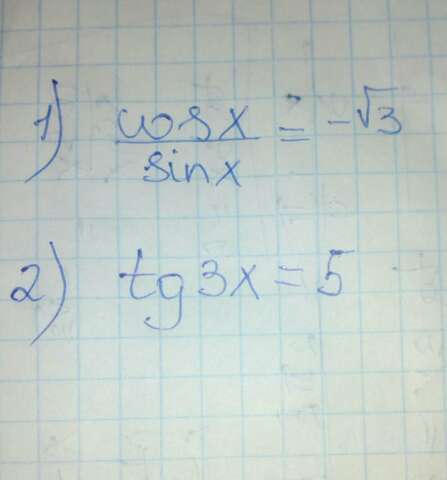 1) cosx/sinx = -√3
2) tg3x = 5